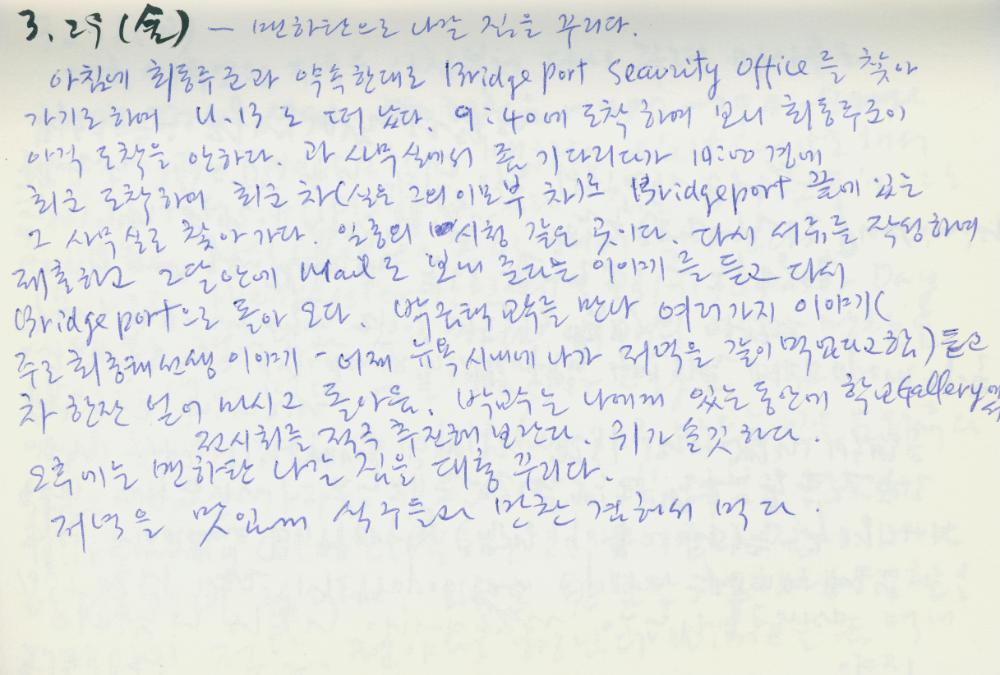 3. 29 (金) — 맨하탄으로 나갈 짐을 꾸리다.
아침에 최동루군과 약속한대로 Bridgeport Security Office를 찾아
가기로하여 U.B로 떠났다. 9:40에 도착하여 보니 최동루군이
아직 도착을 안하다. 과 사무실에서 좀 기다리다가 10:00경에
최군 도착하여 최군 차(실은 그의 이모부 차)로 Bridgeport 끝에 있는
그 사무실로 찾아가다. 일종의 시청 같은 곳이다. 다시 서류를 작성하여
제출하고 2달안에 Mail로 보내 준다는 이야기를 듣고 다시
Bridgeport으로 돌아 오다. 박 교수를 만나 여러가지 이야기(
주로 최종태선생 이야기 - 어제 뉴욕 시내에 나가 저녁을 같이 먹었다고함) 듣고
차 한잔 얻어 마시고 돌아옴. 박교수는 나에게 있는동안에 학교Gallery에서
전시회를 적극 추진해 보란다. 귀가 솔깃하다.
오후에는 맨하탄 나갈 짐을 대충 꾸리다.
저녁을 맛있게 식구들과 만찬 겸해서 먹다.